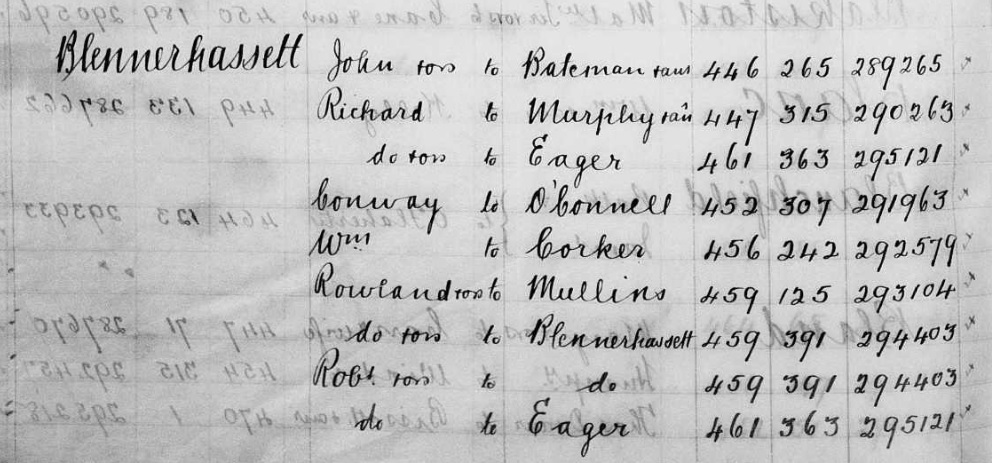 Blennerhassett John & ors to Bateman & ans 446 265 289265
Richard to Murphy & an 447 315 290263
do & ors to Eager 461 363 295121
Conway to O'Connell 452 307 291963
Wm to Corker 456 242 292579
Rowland & ors to Mullins 459 125 293104
do & ors to Blennerhassett 459 391 294403
Robt. & ors to do 459 391 294403
do to Eager 461 363 295121